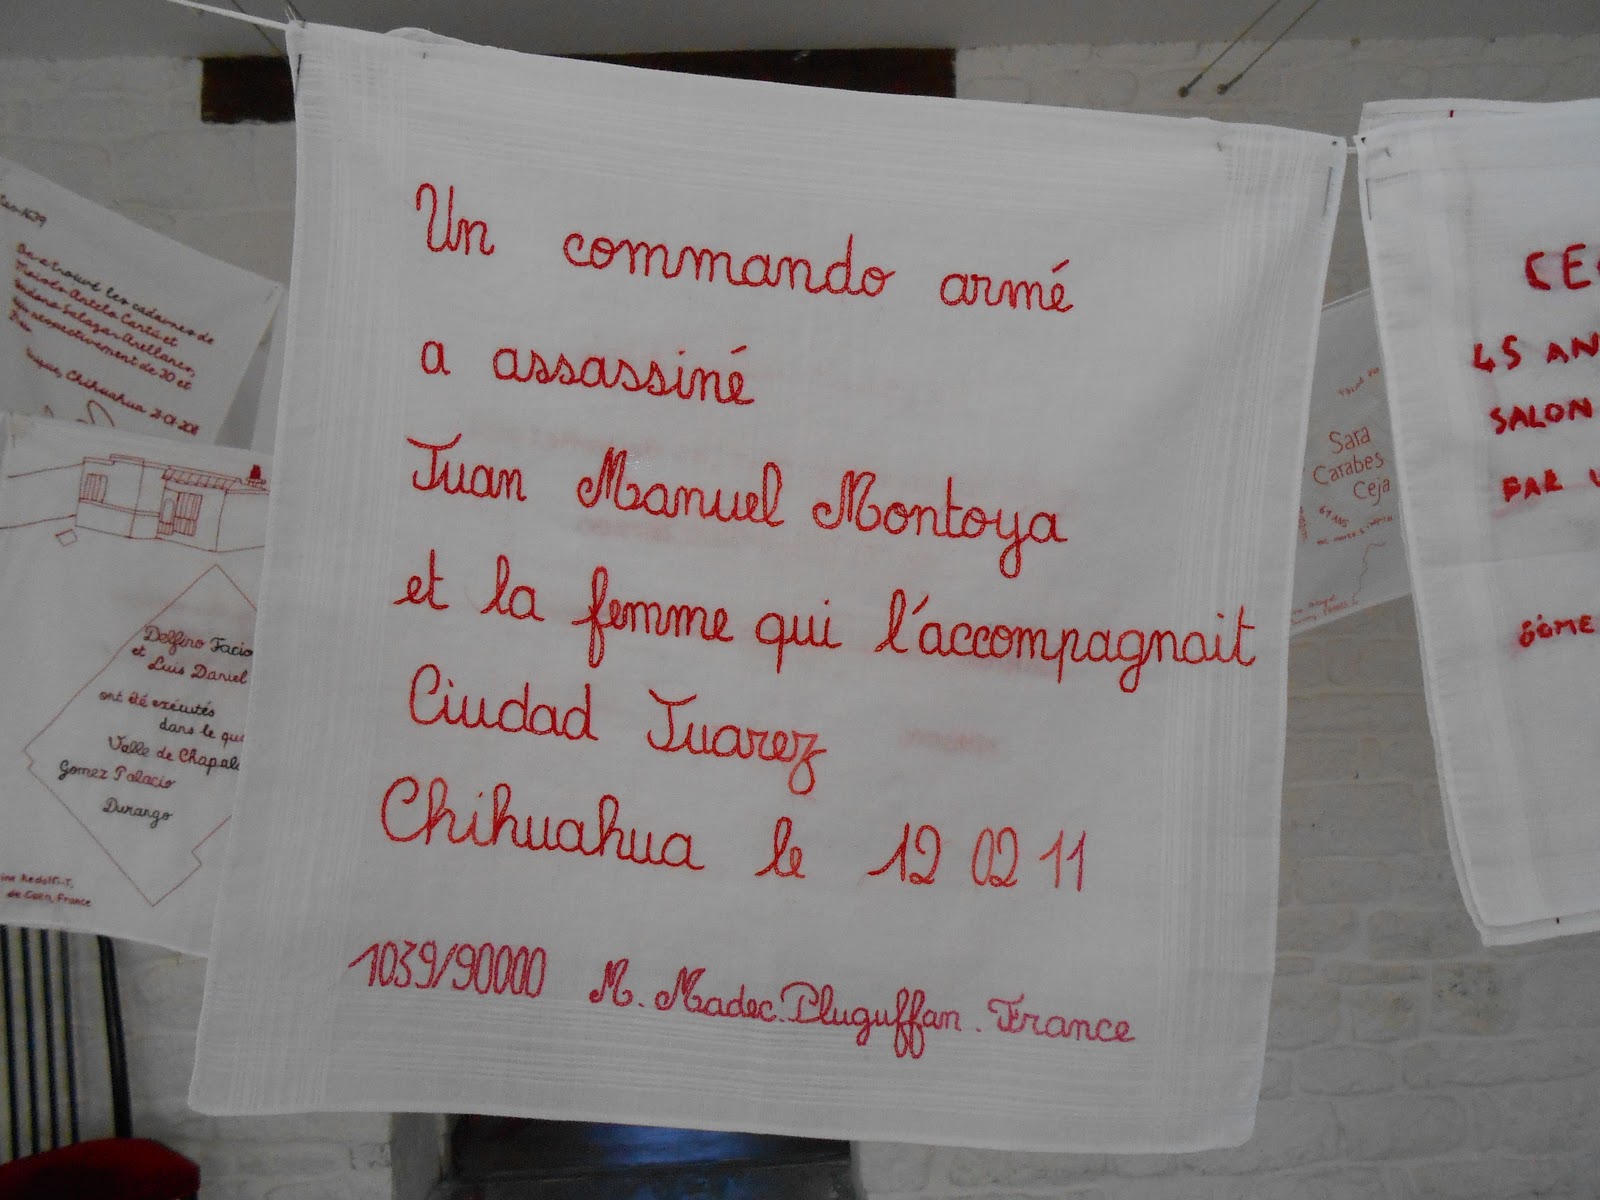 Un commando armé
a assassiné
Juan Manuel Montoya
et la femme qui l'accompagnait
Ciudad Juarez
Chihuahua le 12 02 11
1039/90000 M. Madec. Pluguffan. France
On a trouvé les cadavres de
Salazar Arellanes,
respectivement de 20 et
Chihuahua
Delfino Facio
et Luis Daniel
ont été exécutés
dans le
Valle de
Gomez Palacio
Durango
de Caen, France
Sara
Carabes
Ceja
45
SALON
PAR